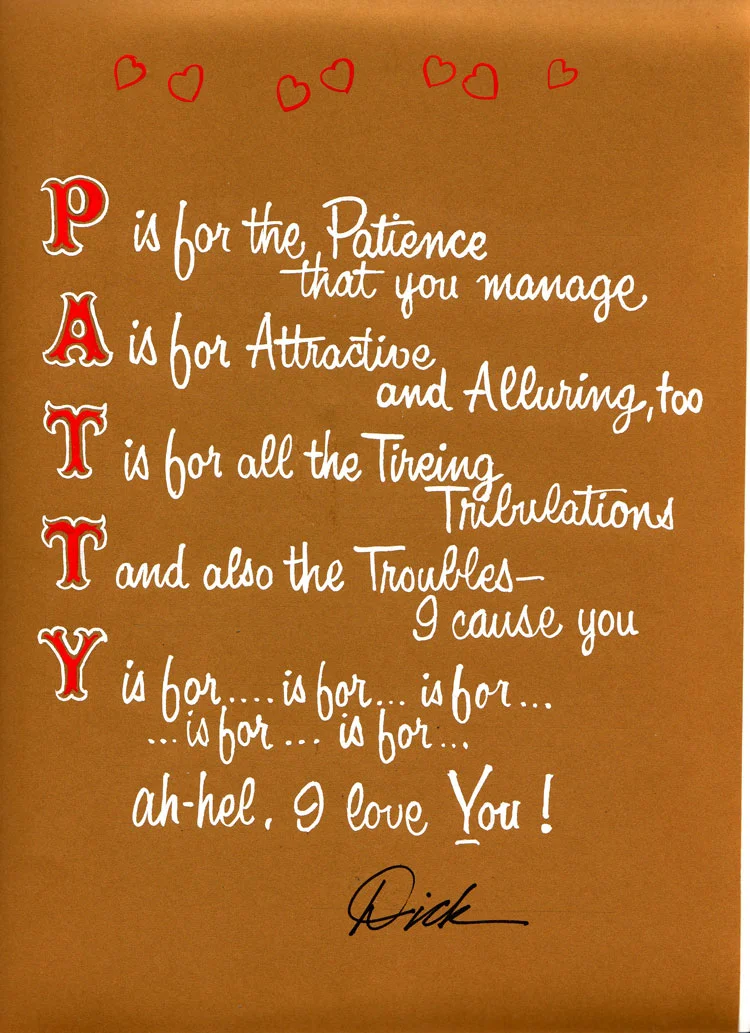 P is for the Patience
that you manage
A is for Attractive
and Alluring, too
T is for all the Tireing
Tribulations
T and also the Troubles—
I cause you
Y is for.... is for... is for...
...is for... is for...
ah-hel. I love You!
Dick